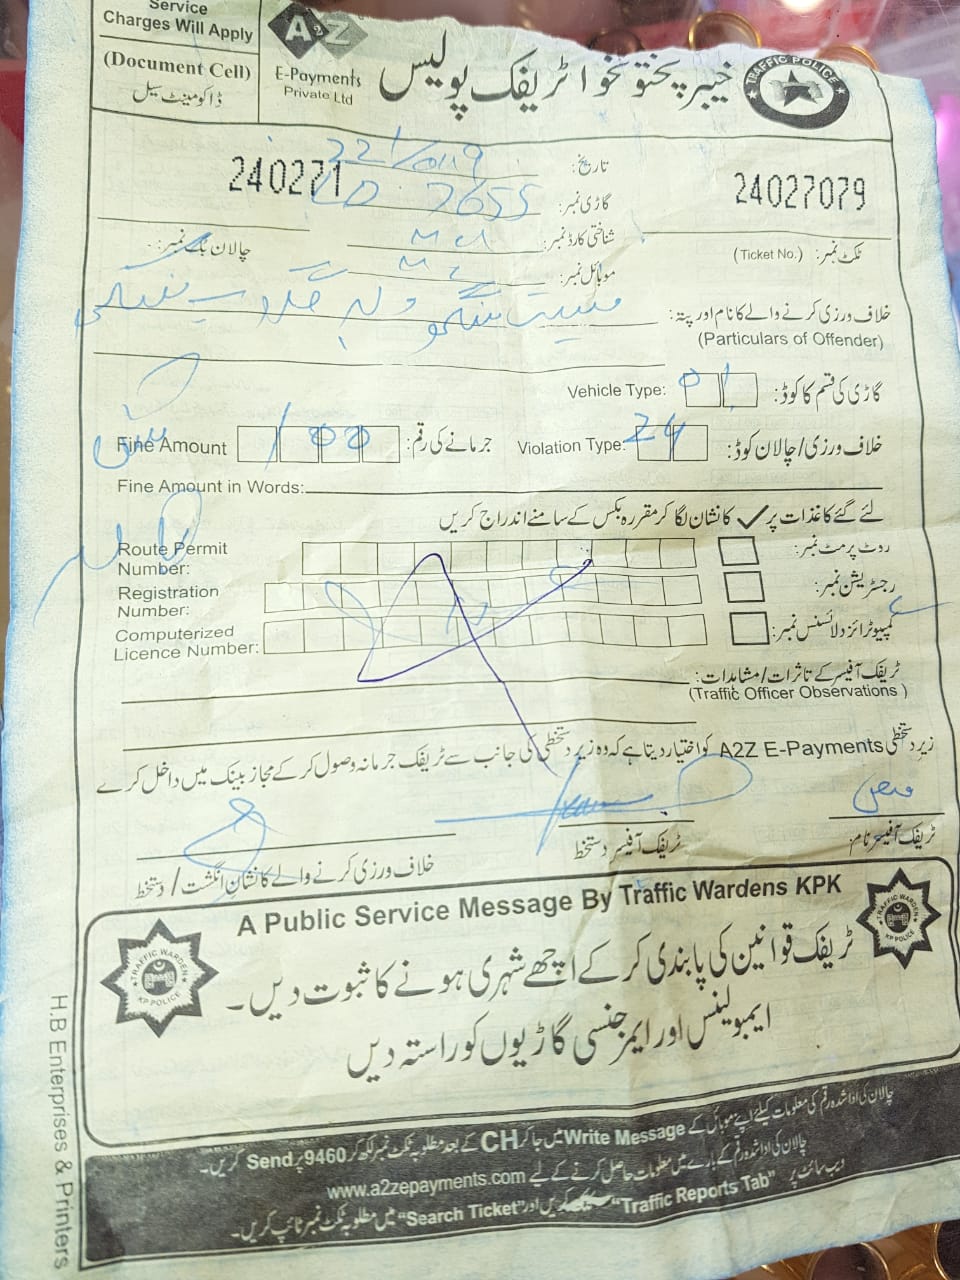 Service
Charges Will Apply
(Document Cell)
ڈاکومینٹ سیل
A2Z
E-Payments
Private Ltd
خیبر پختونخوا ٹریفک پولیس
TRAFFIC POLICE
تاریخ:
240271
گاڑی نمبر: 7655
24027079
شناختی کارڈ نمبر:
چالان بک نمبر:
ٹکٹ نمبر: (Ticket No.)
موبائل نمبر:
خلاف ورزی کرنے والے کا نام اور پتہ:
(Particulars of Offender)
گاڑی کی قسم کا کوڈ: Vehicle Type: 01
خلاف ورزی/چالان کوڈ: Violation Type: 24
جرمانے کی رقم: Fine Amount 100
Fine Amount in Words:
لئے گئے کاغذات پر ✓ کا نشان لگا کر مقررہ بکس کے سامنے اندراج کریں
روٹ پرمٹ نمبر: Route Permit Number:
رجسٹریشن نمبر: Registration Number:
کمپیوٹرائزڈ لائسنس نمبر: Computerized Licence Number:
ٹریفک آفیسر کے تاثرات/مشاہدات:
(Traffic Officer Observations)
زیر دستخطی A2Z E-Payments کو اختیار دیتا ہے کہ وہ زیر دستخطی کی جانب سے ٹریفک جرمانہ وصول کر کے مجاز بینک میں داخل کرے
ٹریفک آفیسر نام:
ٹریفک آفیسر دستخط
خلاف ورزی کرنے والے کا نشان انگشت/دستخط
A Public Service Message By Traffic Wardens KPK
TRAFFIC WARDEN
KP POLICE
TRAFFIC WARDEN
KP POLICE
ٹریفک قوانین کی پابندی کر کے اچھے شہری ہونے کا ثبوت دیں۔
ایمبولینس اور ایمرجنسی گاڑیوں کو راستہ دیں
چالان کی ادا شدہ رقم کی معلومات کیلئے اپنے موبائل کے Write Message میں جا کر CH کے بعد مطلوبہ ٹکٹ نمبر لکھ کر 9460 پر Send کریں۔
چالان کی ادا شدہ رقم کے بارے میں معلومات حاصل کرنے کے لیے www.a2zepayments.com
ویب سائٹ پر "Traffic Reports Tab" کریں اور "Search Ticket" میں مطلوبہ ٹکٹ نمبر ٹائپ کریں۔
H.B Enterprises & Printers